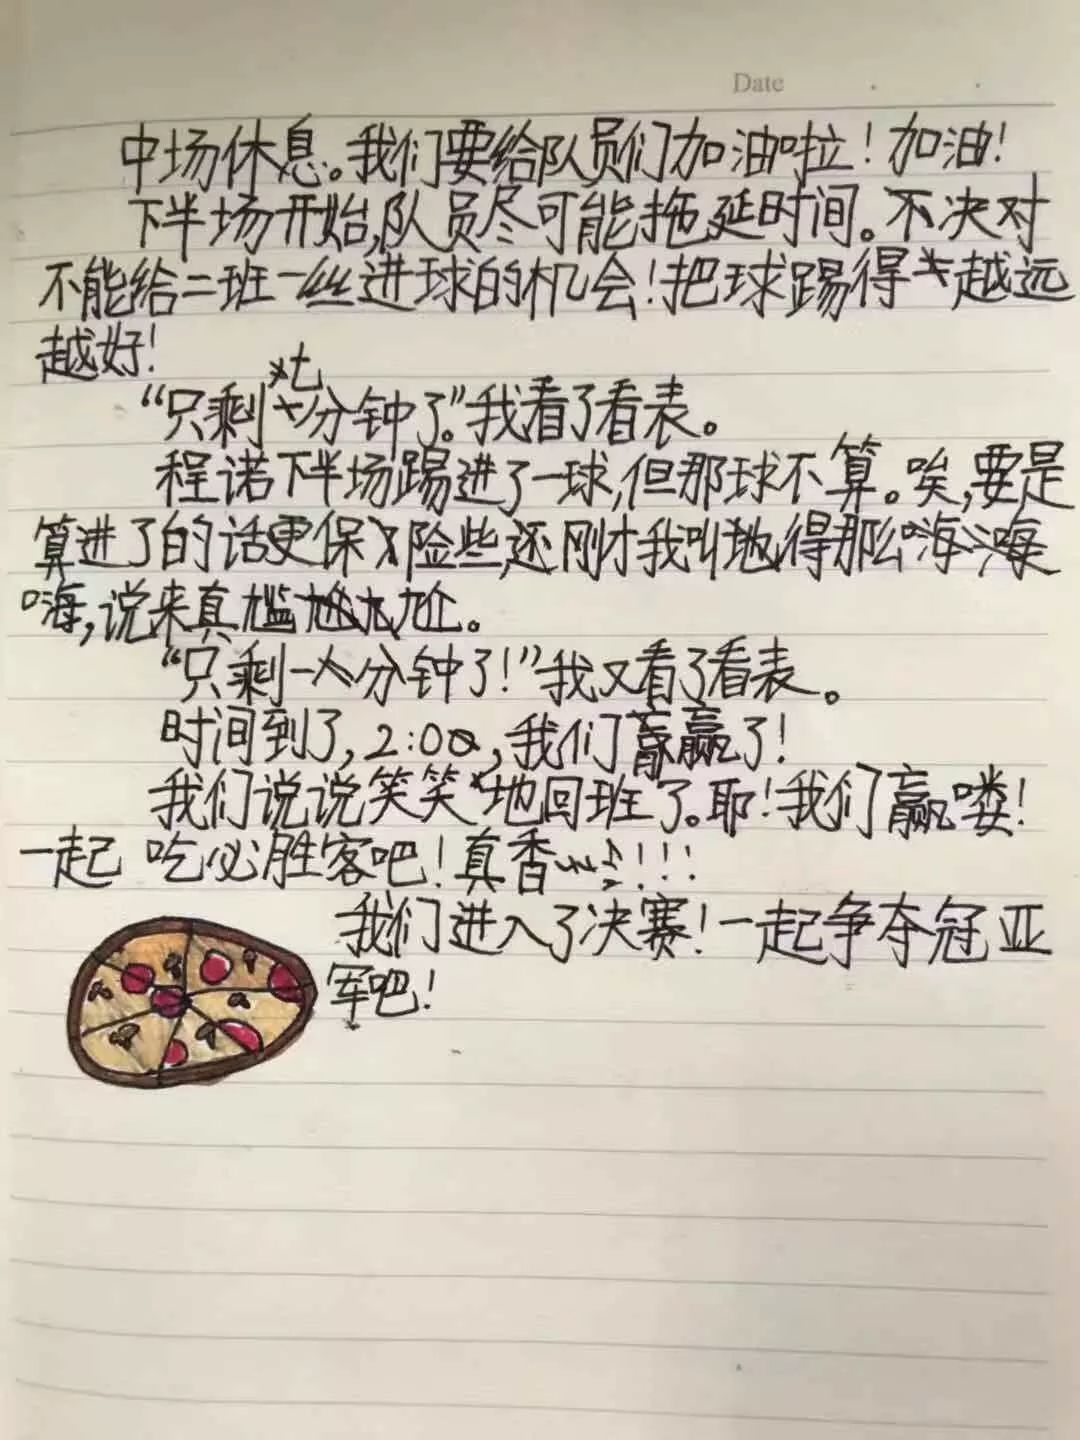 Date
中场休息。我们要给队员们加油啦！加油！
下半场开始,队员尽可能拖延时间。不决对
不能给二班一丝进球的机会！把球踢得越远
越好！
七
“只剩分钟了。”我看了看表。
程诺下半场踢进了一球,但那球不算。唉,要是
算进了的话更保险些,还刚才我叫得那么嗨
嗨,说来真尴尬。
“只剩一分钟了！”我又看了看表。
时间到了,2:00,我们赢了！
我们说说笑笑地回班了。耶！我们赢喽！
一起 吃必胜客吧！真香!!!
我们进入了决赛！一起争夺冠亚
军吧！